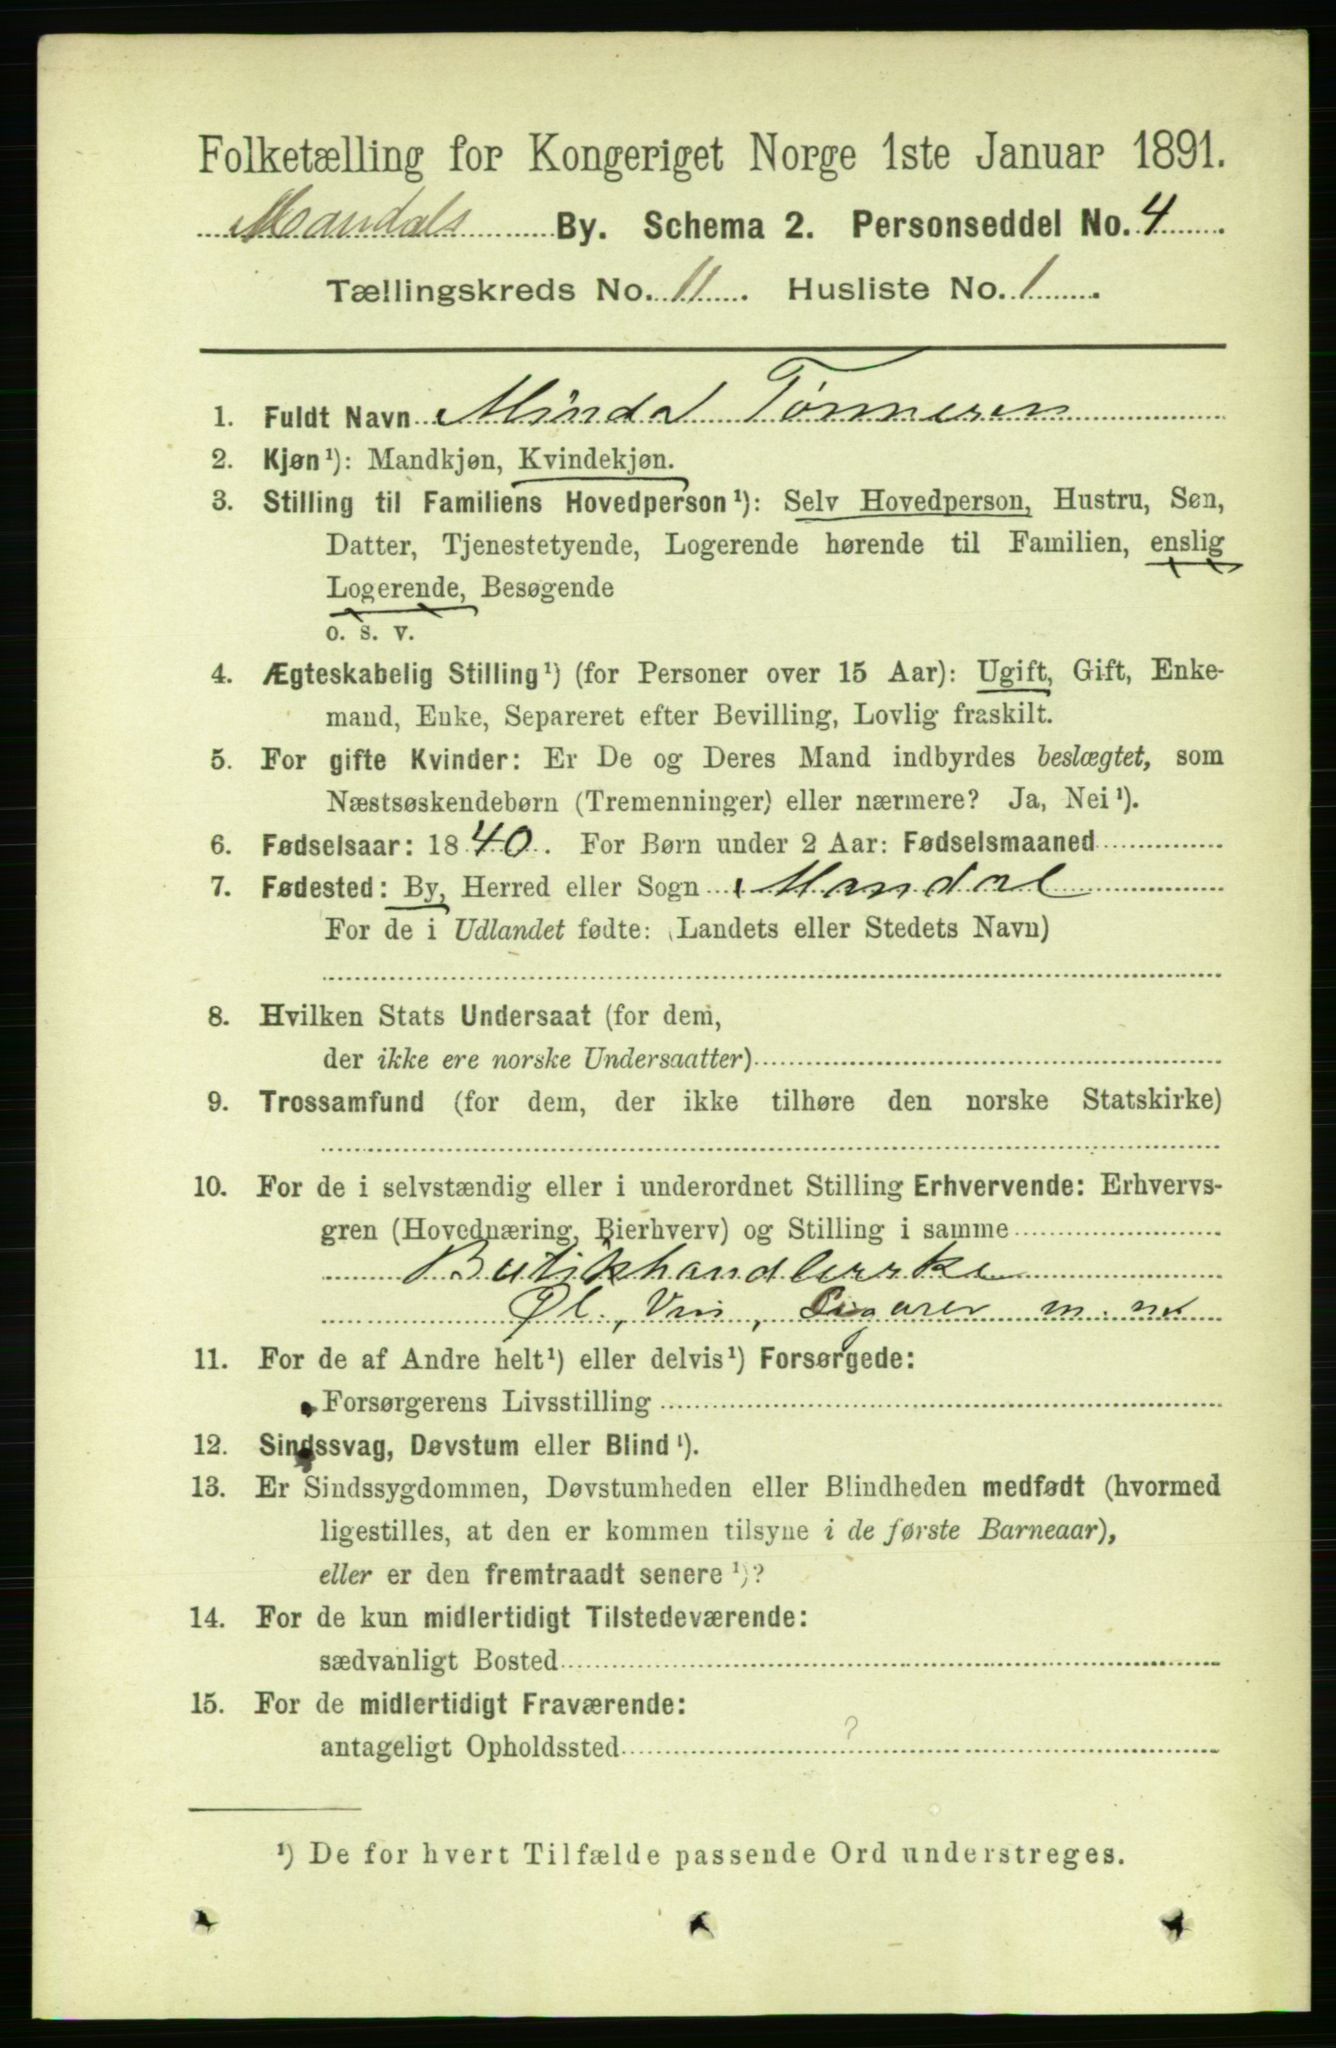 Folketælling for Kongeriget Norge 1ste Januar 1891.
Mandals By. Schema 2. Personseddel No. 4.
Tællingskreds No. 11. Husliste No. 1.
1. Fuldt Navn Minda Tønnesen
2. Kjøn¹): Mandkjøn, Kvindekjøn.
3. Stilling til Familiens Hovedperson¹): Selv Hovedperson, Hustru, Søn,
Datter, Tjenestetyende, Logerende hørende til Familien, enslig
Logerende, Besøgende
o. s. v.
4. Ægteskabelig Stilling¹) (for Personer over 15 Aar): Ugift, Gift, Enke-
mand, Enke, Separeret efter Bevilling, Lovlig fraskilt.
5. For gifte Kvinder: Er De og Deres Mand indbyrdes beslægtet, som
Næstsøskendebørn (Tremenninger) eller nærmere? Ja, Nei¹).
6. Fødselsaar: 1840. For Børn under 2 Aar: Fødselsmaaned
7. Fødested: By, Herred eller Sogn Mandal
For de i Udlandet fødte: (Landets eller Stedets Navn)
8. Hvilken Stats Undersaat (for dem,
der ikke ere norske Undersaatter)
9. Trossamfund (for dem, der ikke tilhøre den norske Statskirke)
10. For de i selvstændig eller i underordnet Stilling Erhvervende: Erhvervs-
gren (Hovednæring, Bierhverv) og Stilling i samme
Butikhandlerske
Øl, Vin, Sigarer m. m.
11. For de af Andre helt¹) eller delvis¹) Forsørgede:
Forsørgerens Livsstilling
12. Sindssvag, Døvstum eller Blind¹).
13. Er Sindssygdommen, Døvstumheden eller Blindheden medfødt (hvormed
ligestilles, at den er kommen tilsyne i de første Barneaar),
eller er den fremtraadt senere¹)?
14. For de kun midlertidigt Tilstedeværende:
sædvanligt Bosted
15. For de midlertidigt Fraværende:
antageligt Opholdssted ?
¹) De for hvert Tilfælde passende Ord understreges.